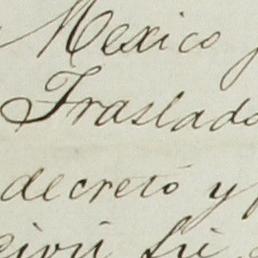 Mexico
Traslado
decretó y